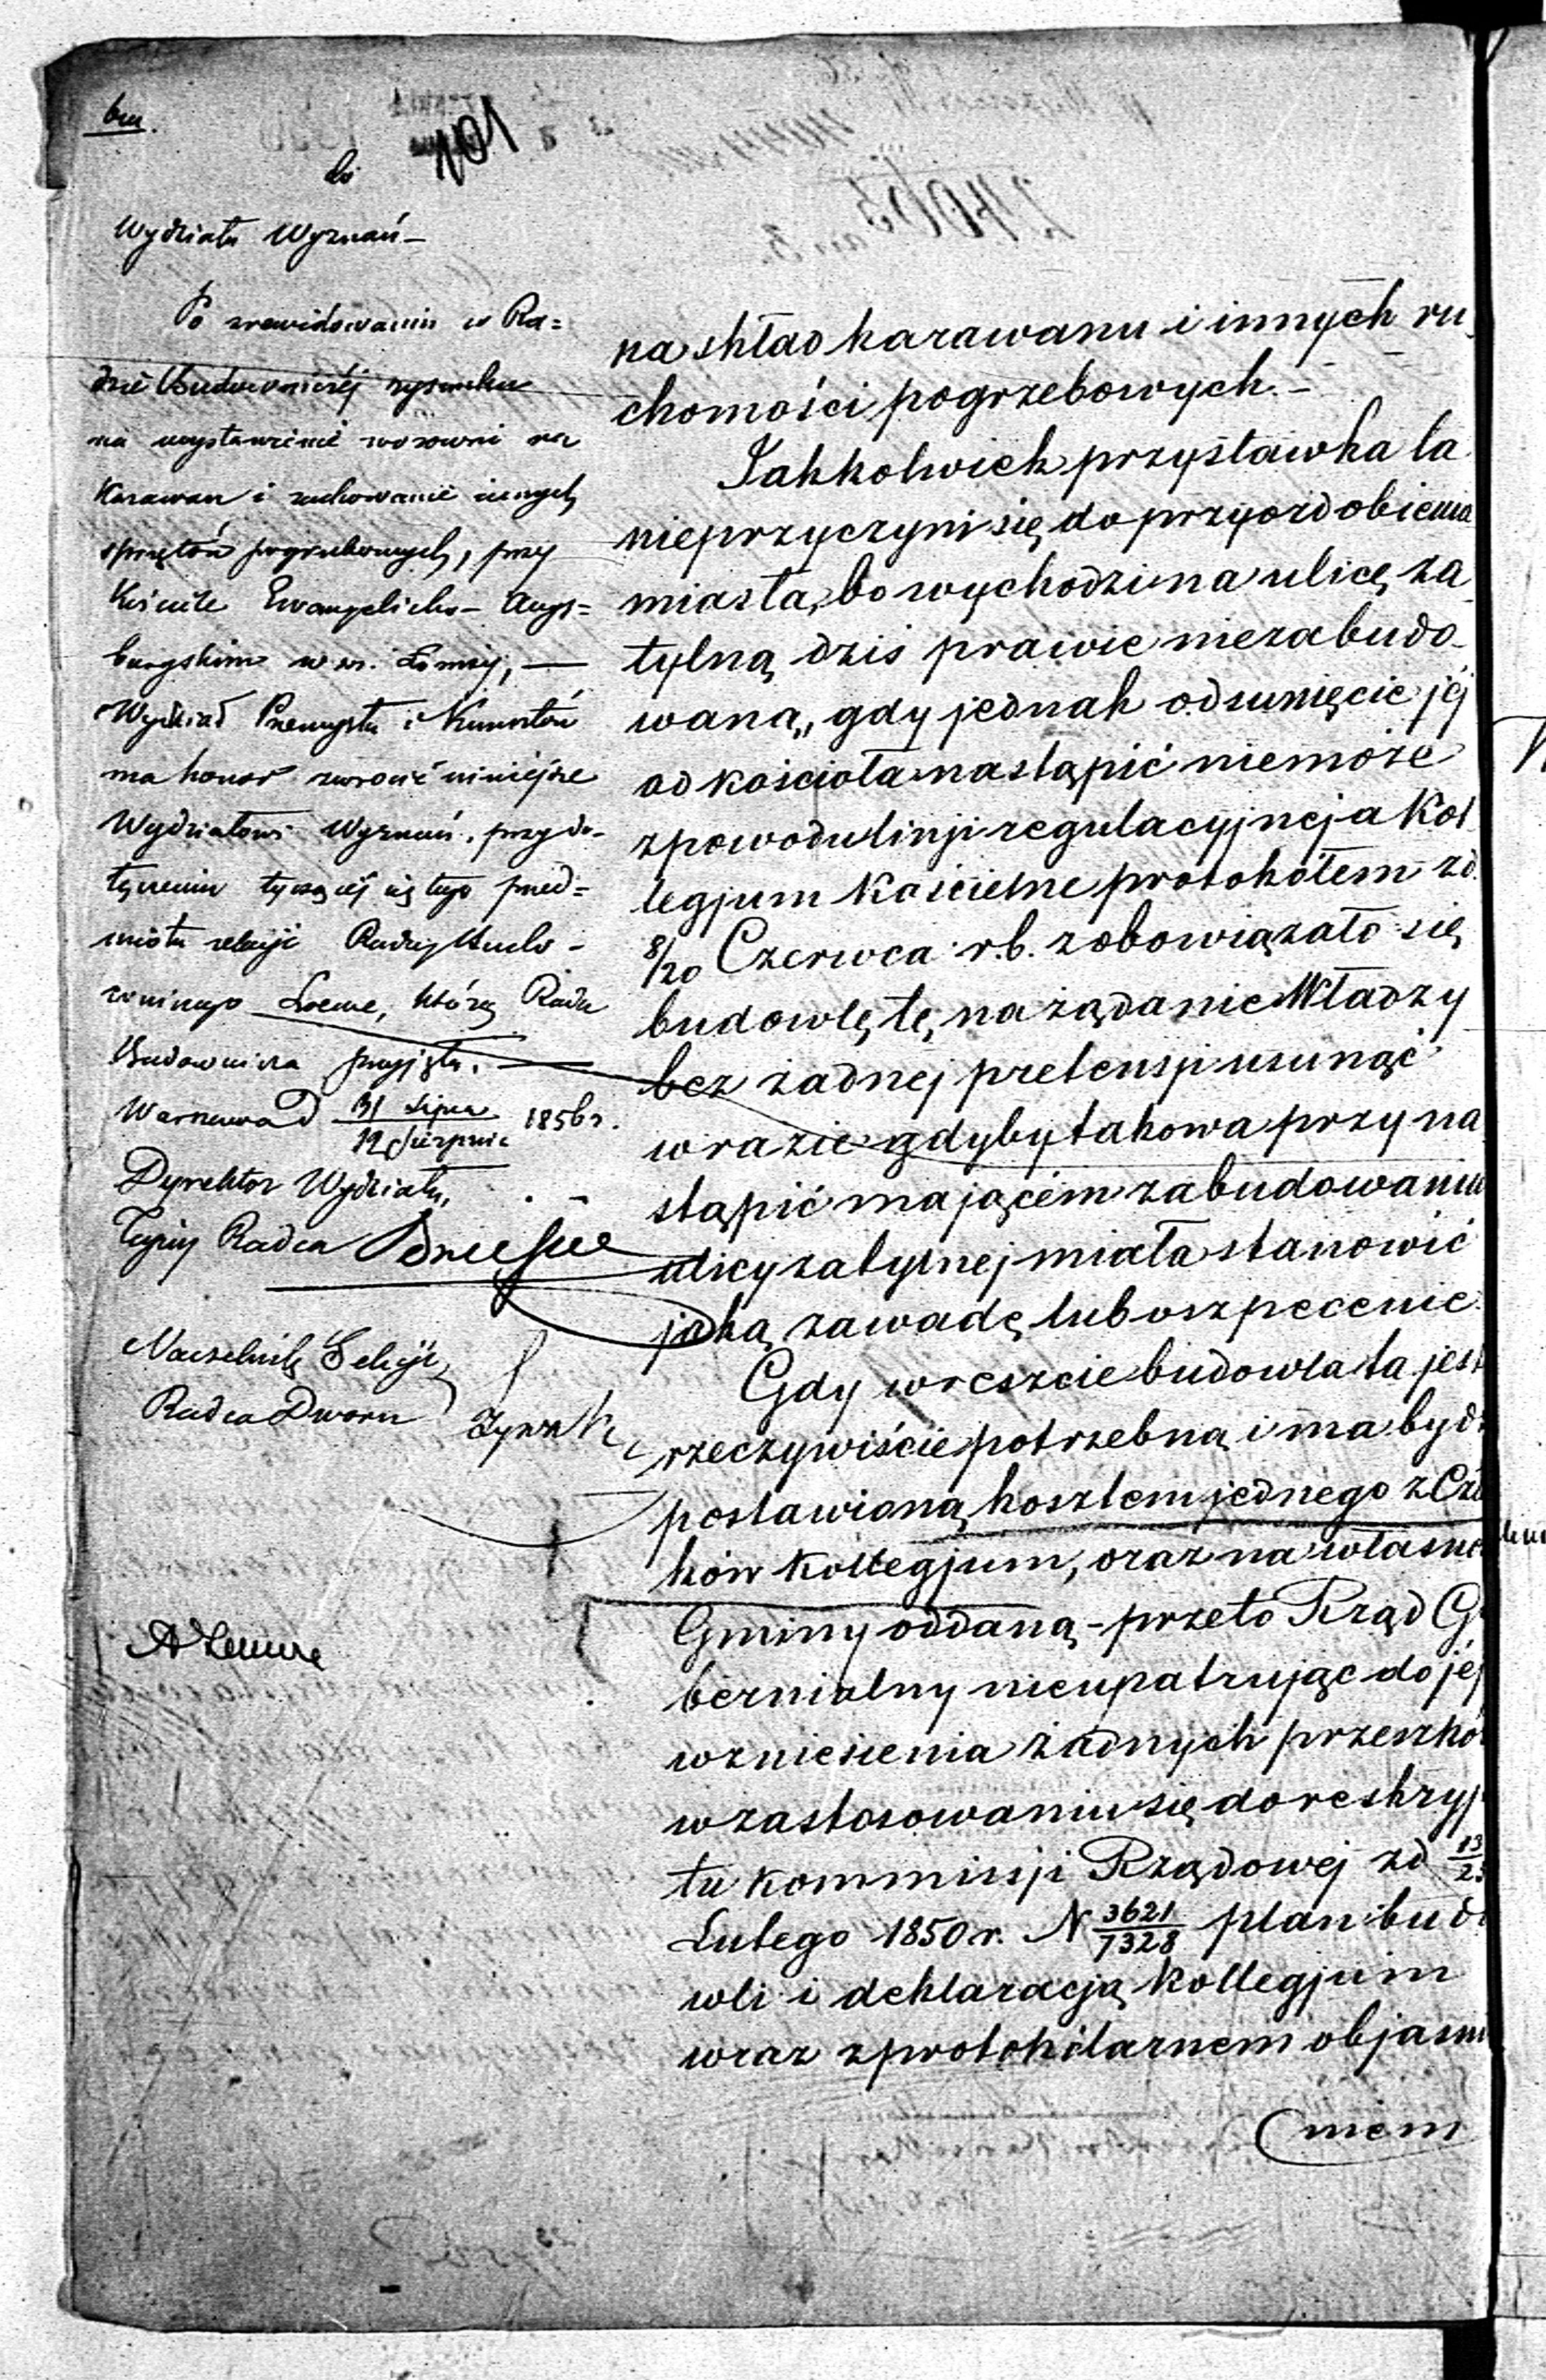 bm.
do
101
Wydziału Wyznań –
Po zrewidowaniu w Ra=
dzie Budowniczéj rysunku
na wystawienie wozowni na
Karawan i zachowanie innych
sprzętów pogrzebowych, przy
Kościele Ewangelicko – Augs=
burgskim w m. Łomży, —
Wydział Przemysłu i Kunsztów
ma honor zwrócić niniejsze
Wydziałowi Wyznań, przy do-
łączeniu tyczącéj się tego przed=
miotu relacyi Radzcy Budo-
wniczego Loewe, którą Rada
Budownicza przyjęła. —
Warszawa d 31 Lipca / 12 Sierpnia 1856 r.
Dyrektor Wydziału,
Tajny Radca
Naczelnik Sekcyi,
Radca Dworu
na skład karawanu i innych ru_
chomości pogrzebowych. –
Jakkolwiek przystawka ta
nieprzyczyni się do przyozdobienia
miasta, bo wychodzi na ulicę za_
tylną dziś prawie niezabudo_
waną, gdy jednak odsunięcie jéj
od kościoła nastąpić niemoże
z powodu linji regulacyjnej a Kol_
legjum Kościelne protokółem z d.
8/20 Czerwca r.b. zobowiązało się
budowlę tę na żądanie Władzy
bez żadnej pretensji usunąć
w razie gdyby takowa przy na_
stąpić mającém zabudowaniu
ulicy zatylnej miała stanowić
jaką zawadę lub oszpecenie.
Gdy wreszcie budowla ta jest
rzeczywiście potrzebną i ma bydź
postawioną kosztem jednego z Czł
ków Kollegjum, oraz na własno
Gminy oddaną – przeto Rząd Gu
bernialny nieupatrując do jéj
wzniesienia żadnych przeszkó
w zastosowaniu się do reskryp
tu Kommissji Rządowej z d 13/25
Lutego 1850 r. N 3621/7328 plan budo
wli i deklaracją Kollegjum
wraz z protokólarnem objaśni
niem